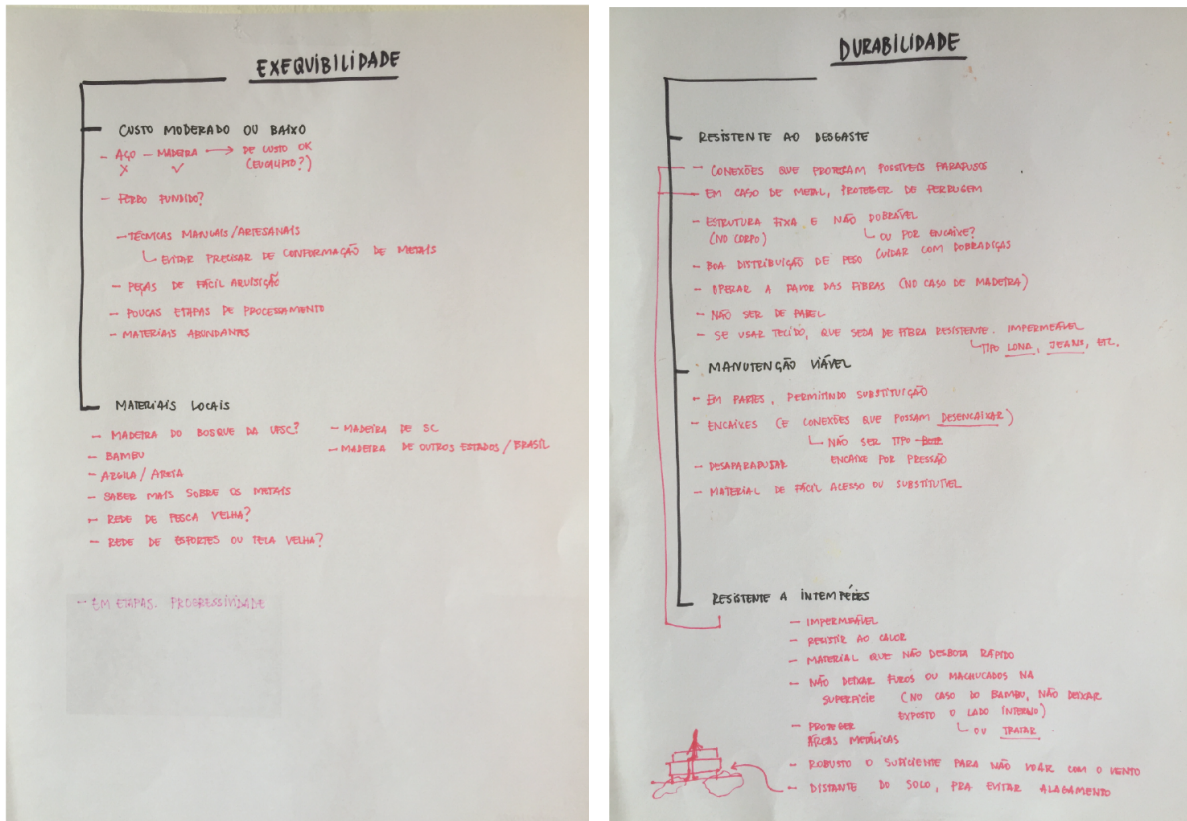 EXEQUIBILIDADE
CUSTO MODERADO OU BAIXO
- AÇO - MADEIRA → DE CUSTO OK
X ✓ (EUCALIPTO?)
- FERRO FUNDIDO?
- TÉCNICAS MANUAIS/ARTESANAIS
EVITAR PRECISAR DE CONFORMAÇÃO DE METAIS
- PEÇAS DE FÁCIL AQUISIÇÃO
- POUCAS ETAPAS DE PROCESSAMENTO
- MATERIAIS ABUNDANTES
MATERIAIS LOCAIS
- MADEIRA DO BOSQUE DA UFSC? - MADEIRA DE SC
- BAMBU - MADEIRA DE OUTROS ESTADOS / BRASIL
- ARGILA / AREIA
- SABER MAIS SOBRE OS METAIS
- REDE DE PESCA VELHA?
- REDE DE ESPORTES OU TELA VELHA?
- EM ETAPAS. PROGRESSIVIDADE
DURABILIDADE
RESISTENTE AO DESGASTE
- CONEXÕES QUE PROTEJAM POSSÍVEIS PARAFUSOS
- EM CASO DE METAL, PROTEGER DE FERRUGEM
- ESTRUTURA FIXA E NÃO DOBRÁVEL
(NO CORPO) OU POR ENCAIXE?
CUIDAR COM DOBRADIÇAS
- BOA DISTRIBUIÇÃO DE PESO
- OPERAR A FAVOR DAS FIBRAS (NO CASO DE MADEIRA)
- NÃO SER DE PAPEL
- SE USAR TECIDO, QUE SEJA DE FIBRA RESISTENTE. IMPERMEÁVEL
TIPO LONA, JEANS, ETC.
MANUTENÇÃO VIÁVEL
- EM PARTES, PERMITINDO SUBSTITUIÇÃO
- ENCAIXES (E CONEXÕES QUE POSSAM DESENCAIXAR)
NÃO SER TIPO
ENCAIXE POR PRESSÃO
- DESAPARAFUSAR
- MATERIAL DE FÁCIL ACESSO OU SUBSTITUÍEL
RESISTENTE A INTEMPÉRIES
- IMPERMEÁVEL
- RESISTIR AO CALOR
- MATERIAL QUE NÃO DESBOTA RÁPIDO
- NÃO DEIXAR FUROS OU MACHUCADOS NA
SUPERFÍCIE (NO CASO DO BAMBU, NÃO DEIXAR
EXPOSTO O LADO INTERNO)
OU TRATAR
- PROTEGER
ÁREAS METÁLICAS
- ROBUSTO O SUFICIENTE PARA NÃO VOAR COM O VENTO
- DISTANTE DO SOLO, PRA EVITAR ALAGAMENTO